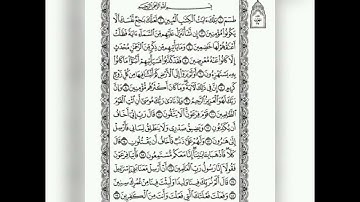 بِسْمِ اللَّهِ الرَّحْمَٰنِ الرَّحِيمِ
طسٓمٓ ۝ تِلْكَ ءَايَٰتُ ٱلْكِتَٰبِ ٱلْمُبِينِ ۝ لَعَلَّكَ بَٰخِعٌ نَّفْسَكَ أَلَّا
يَكُونُوا۟ مُؤْمِنِينَ ۝ إِن نَّشَأْ نُنَزِّلْ عَلَيْهِم مِّنَ ٱلسَّمَآءِ ءَايَةً فَظَلَّتْ
أَعْنَٰقُهُمْ لَهَا خَٰضِعِينَ ۝ وَمَا يَأْتِيهِم مِّن ذِكْرٍ مِّنَ ٱلرَّحْمَٰنِ مُحْدَثٍ
إِلَّا كَانُوا۟ عَنْهُ مُعْرِضِينَ ۝ فَقَدْ كَذَّبُوا۟ فَسَيَأْتِيهِمْ أَنۢبَٰٓؤُا۟ مَا كَانُوا۟
بِهِۦ يَسْتَهْزِءُونَ ۝ أَوَلَمْ يَرَوْا۟ إِلَى ٱلْأَرْضِ كَمْ أَنۢبَتْنَا فِيهَا مِن كُلِّ زَوْجٍ
كَرِيمٍ ۝ إِنَّ فِى ذَٰلِكَ لَءَايَةً وَمَا كَانَ أَكْثَرُهُم مُّؤْمِنِينَ ۝ وَإِنَّ
رَبَّكَ لَهُوَ ٱلْعَزِيزُ ٱلرَّحِيمُ ۝ وَإِذْ نَادَىٰ رَبُّكَ مُوسَىٰٓ أَنِ ٱئْتِ ٱلْقَوْمَ
ٱلظَّٰلِمِينَ ۝ قَوْمَ فِرْعَوْنَ أَلَا يَتَّقُونَ ۝ قَالَ رَبِّ إِنِّىٓ أَخَافُ
أَن يُكَذِّبُونِ ۝ وَيَضِيقُ صَدْرِى وَلَا يَنطَلِقُ لِسَانِى فَأَرْسِلْ
إِلَىٰ هَٰرُونَ ۝ وَلَهُمْ عَلَىَّ ذَنۢبٌ فَأَخَافُ أَن يَقْتُلُونِ ۝ قَالَ
كَلَّا فَٱذْهَبَا بِـَٔايَٰتِنَآ إِنَّا مَعَكُم مُّسْتَمِعُونَ ۝ فَأْتِيَا فِرْعَوْنَ
فَقُولَآ إِنَّا رَسُولُ رَبِّ ٱلْعَٰلَمِينَ ۝ أَنْ أَرْسِلْ مَعَنَا بَنِىٓ إِسْرَٰٓءِيلَ
۝ قَالَ أَلَمْ نُرَبِّكَ فِينَا وَلِيدًا وَلَبِثْتَ فِينَا مِنْ عُمُرِكَ سِنِينَ
۝ وَفَعَلْتَ فَعْلَتَكَ ٱلَّتِى فَعَلْتَ وَأَنتَ مِنَ ٱلْكَٰفِرِينَ ۝